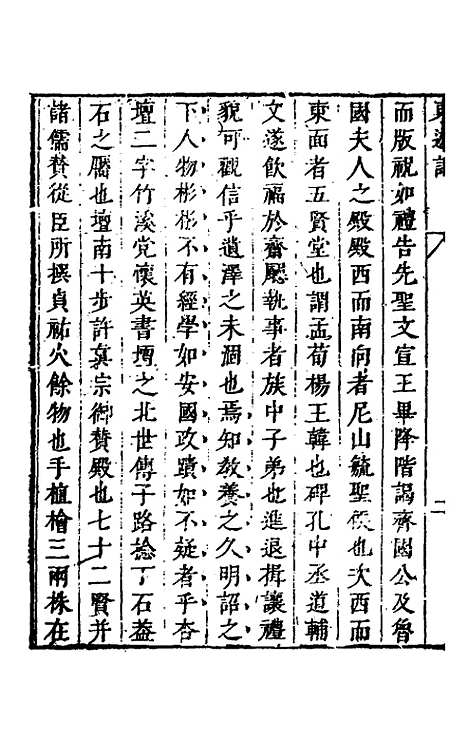 東遊記
二
而版祝如禮告先聖文宣王畢降階謁齊國公及魯
國夫人之殿殿西而南向者尼山毓聖侯也次西而
東面者五賢堂也謂孟荀楊王韓也碑孔中丞道輔
文遂飲福於齋廳執事者族中子弟也進退揖讓禮
貌可觀信乎遺澤之未涸也焉知教養之久明詔之
下人物彬彬不有經學如安國政蹟如不疑者乎杏
壇二字竹溪党懷英書壇之北世傳子路捻丁石葢
石之靨也壇南十步許真宗御贊殿也七十二賢并
諸儒贊從臣所撰貞祐火餘物也手植檜三兩株在